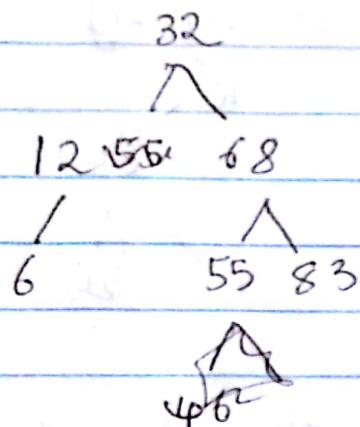 32
12 55 68
6 55 83